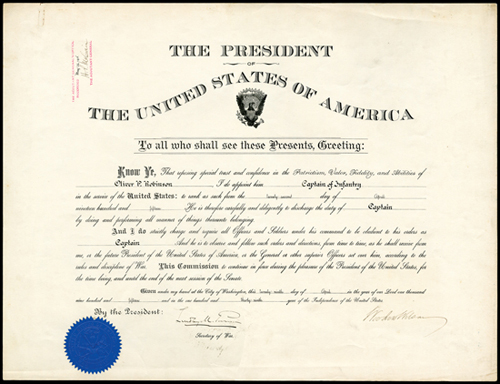 THE PRESIDENT
OF
THE UNITED STATES OF AMERICA
To all who shall see these Presents, Greeting:
Know Ye, That reposing special trust and confidence in the Patriotism, Valor, Fidelity, and Abilities of
Oliver P. Robinson, I do appoint him Captain of Infantry
in the service of the United States: to rank as such from the second day of April
nineteen hundred and fifteen. He is therefore carefully and diligently to discharge the duty of Captain
by doing and performing all manner of things thereunto belonging.
And I do strictly charge and require all Officers and Soldiers under his command to be obedient to his orders as
Captain. And he is to observe and follow such orders and directions, from time to time, as he shall receive from
me, or the future President of the United States of America, or the General or other superior Officers set over him, according to the
rules and discipline of War. This Commission to continue in force during the pleasure of the President of the United States, for
the time being, and until the end of the next session of the Senate.
Given under my hand at the City of Washington, this day of April in the year of our Lord one thousand
nine hundred and fifteen and in the one hundred and thirty ninth year of the Independence of the United States.
By the President:
Secretary of War.